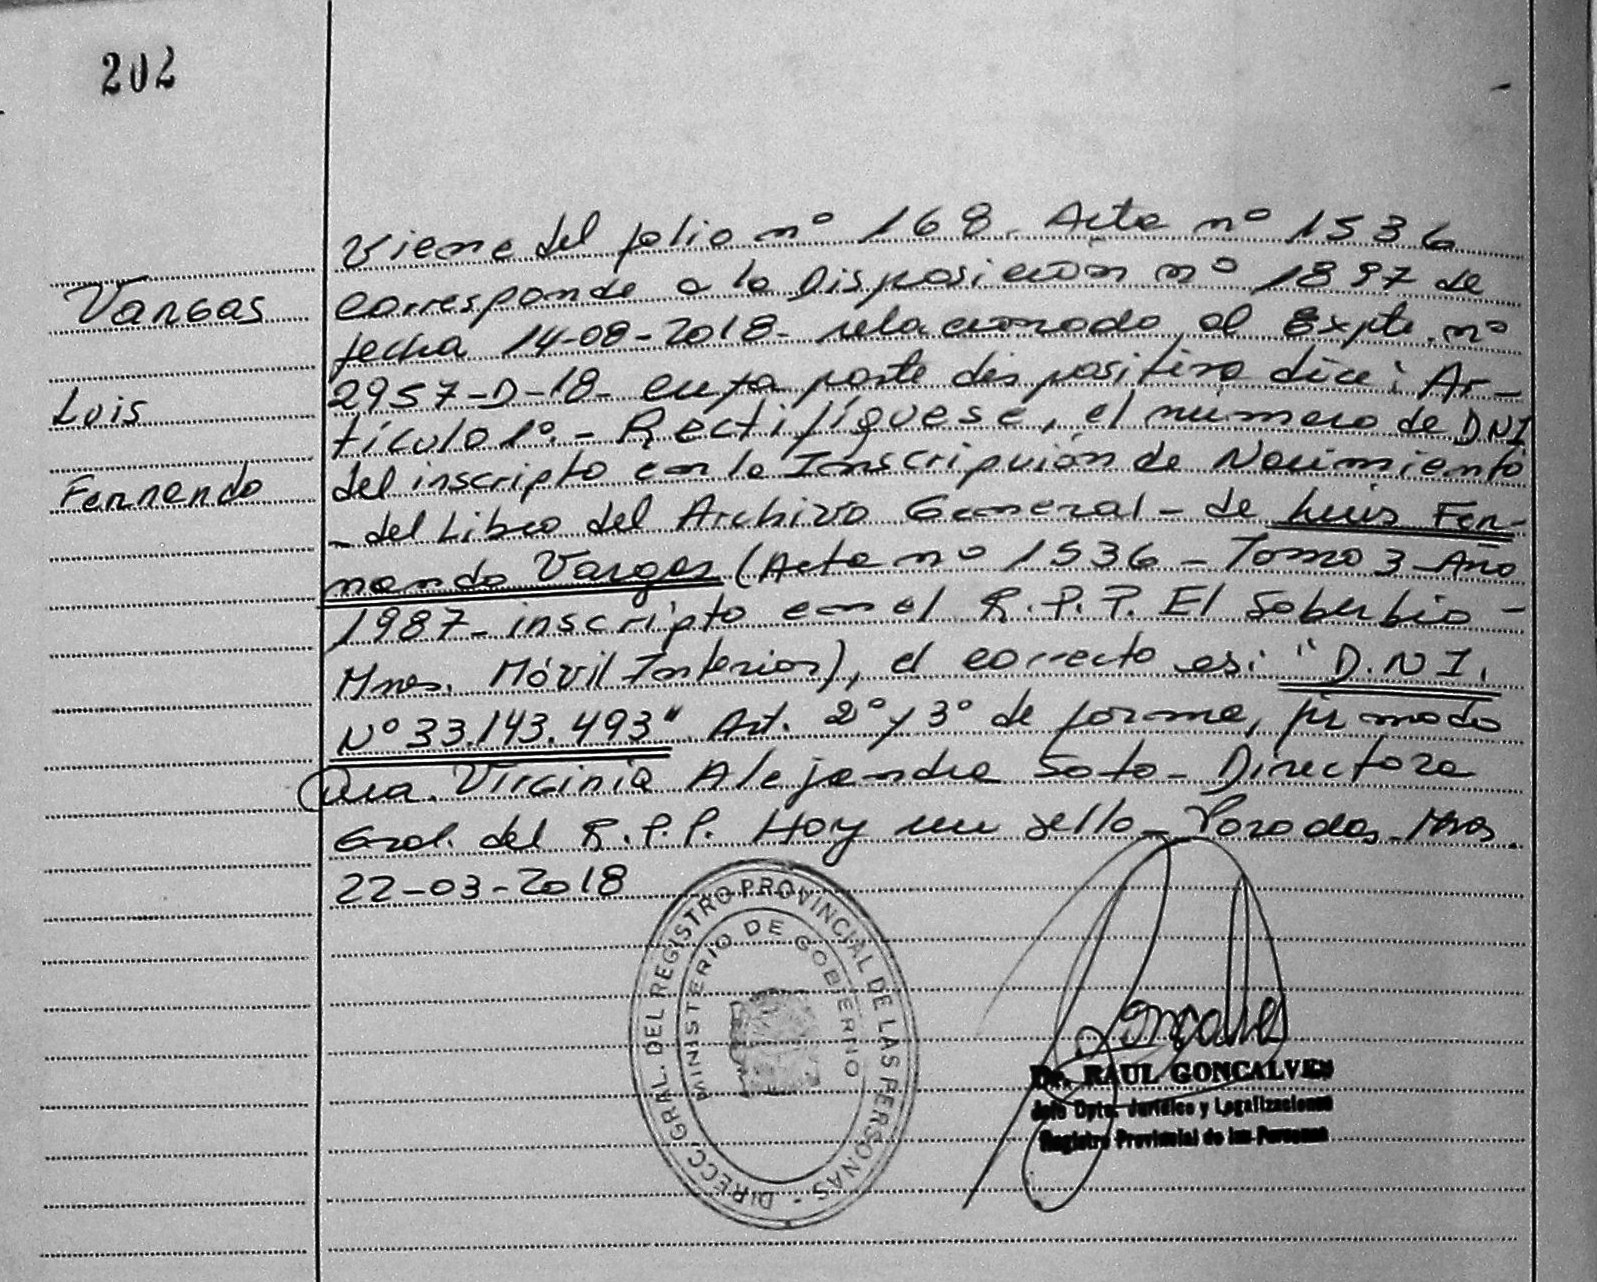 202
Vargas
Luis
Fernando
Viene del folio nº 168. Acta nº 1536
corresponde a la Disposición nº 1897 de
fecha 14-08-2018- relacionado al Expte. nº
2957-D-18- cuya parte dispositiva dice: Ar-
tículo 1º.- Rectifíquese, el número de DNI
del inscripto en la Inscripción de Nacimiento
- del Libro del Archivo General - de Luis Fer-
nando Vargas (Acta nº 1536 - Tomo 3 - Año
1987- inscripto en el R.P.P. El Soberbio -
Mnes. Móvil Interior), el correcto es: "D.N.I.
Nº 33.143.493". Art. 2º y 3º de forma, firmado
Dra. Virginia Alejandra Soto - Directora
Gral. del R.P.P. Hay un sello - Posadas - Mnes.
22-03-2018
DIRECC. GRAL. DEL REGISTRO PROVINCIAL DE LAS PERSONAS -
MINISTERIO DE GOBIERNO
Goncalves
Dr. RAUL GONCALVES
Jefe Dpto. Jurídico y Legalizaciones
Registro Provincial de las Personas